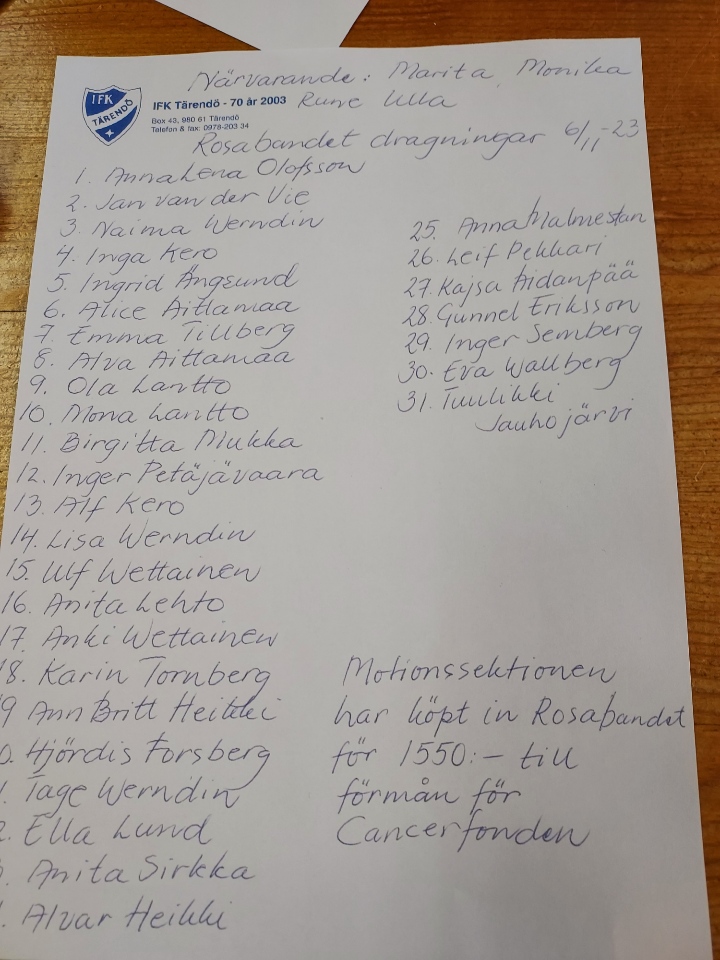 Närvarande: Marita, Monika
IFK
TÄRENDÖ
IFK Tärendö - 70 år 2003 Rune Ulla
Box 43, 980 61 Tärendö
Telefon & fax: 0978-203 34
Rosabandet dragningar 6/11-23
1. AnnaLena Olofsson
2. Jan van der Vie
3. Naima Werndin
4. Inga Kero
5. Ingrid Ängsund
6. Alice Aitlamaa
7. Emma Tillberg
8. Alva Aittamaa
9. Ola Lantto
10. Mona Lantto
11. Birgitta Mukka
12. Inger Petäjävaara
13. Alf Kero
14. Lisa Werndin
15. Ulf Wettainen
16. Anita Lehto
17. Anki Wettainen
18. Karin Tornberg
19 Ann Britt Heikki
0. Hjördis Forsberg
1. Tage Werndin
2. Ella Lund
3. Anita Sirkka
4. Alvar Heikki
25. Anna Malmestan
26. Leif Pekkari
27. Kajsa Aidanpää
28. Gunnel Eriksson
29. Inger Semberg
30. Eva Wallberg
31. Tuulikki
Jauhojärvi
Motionssektionen
har köpt in Rosabandet
för 1550:- till
förmån för
Cancerfonden